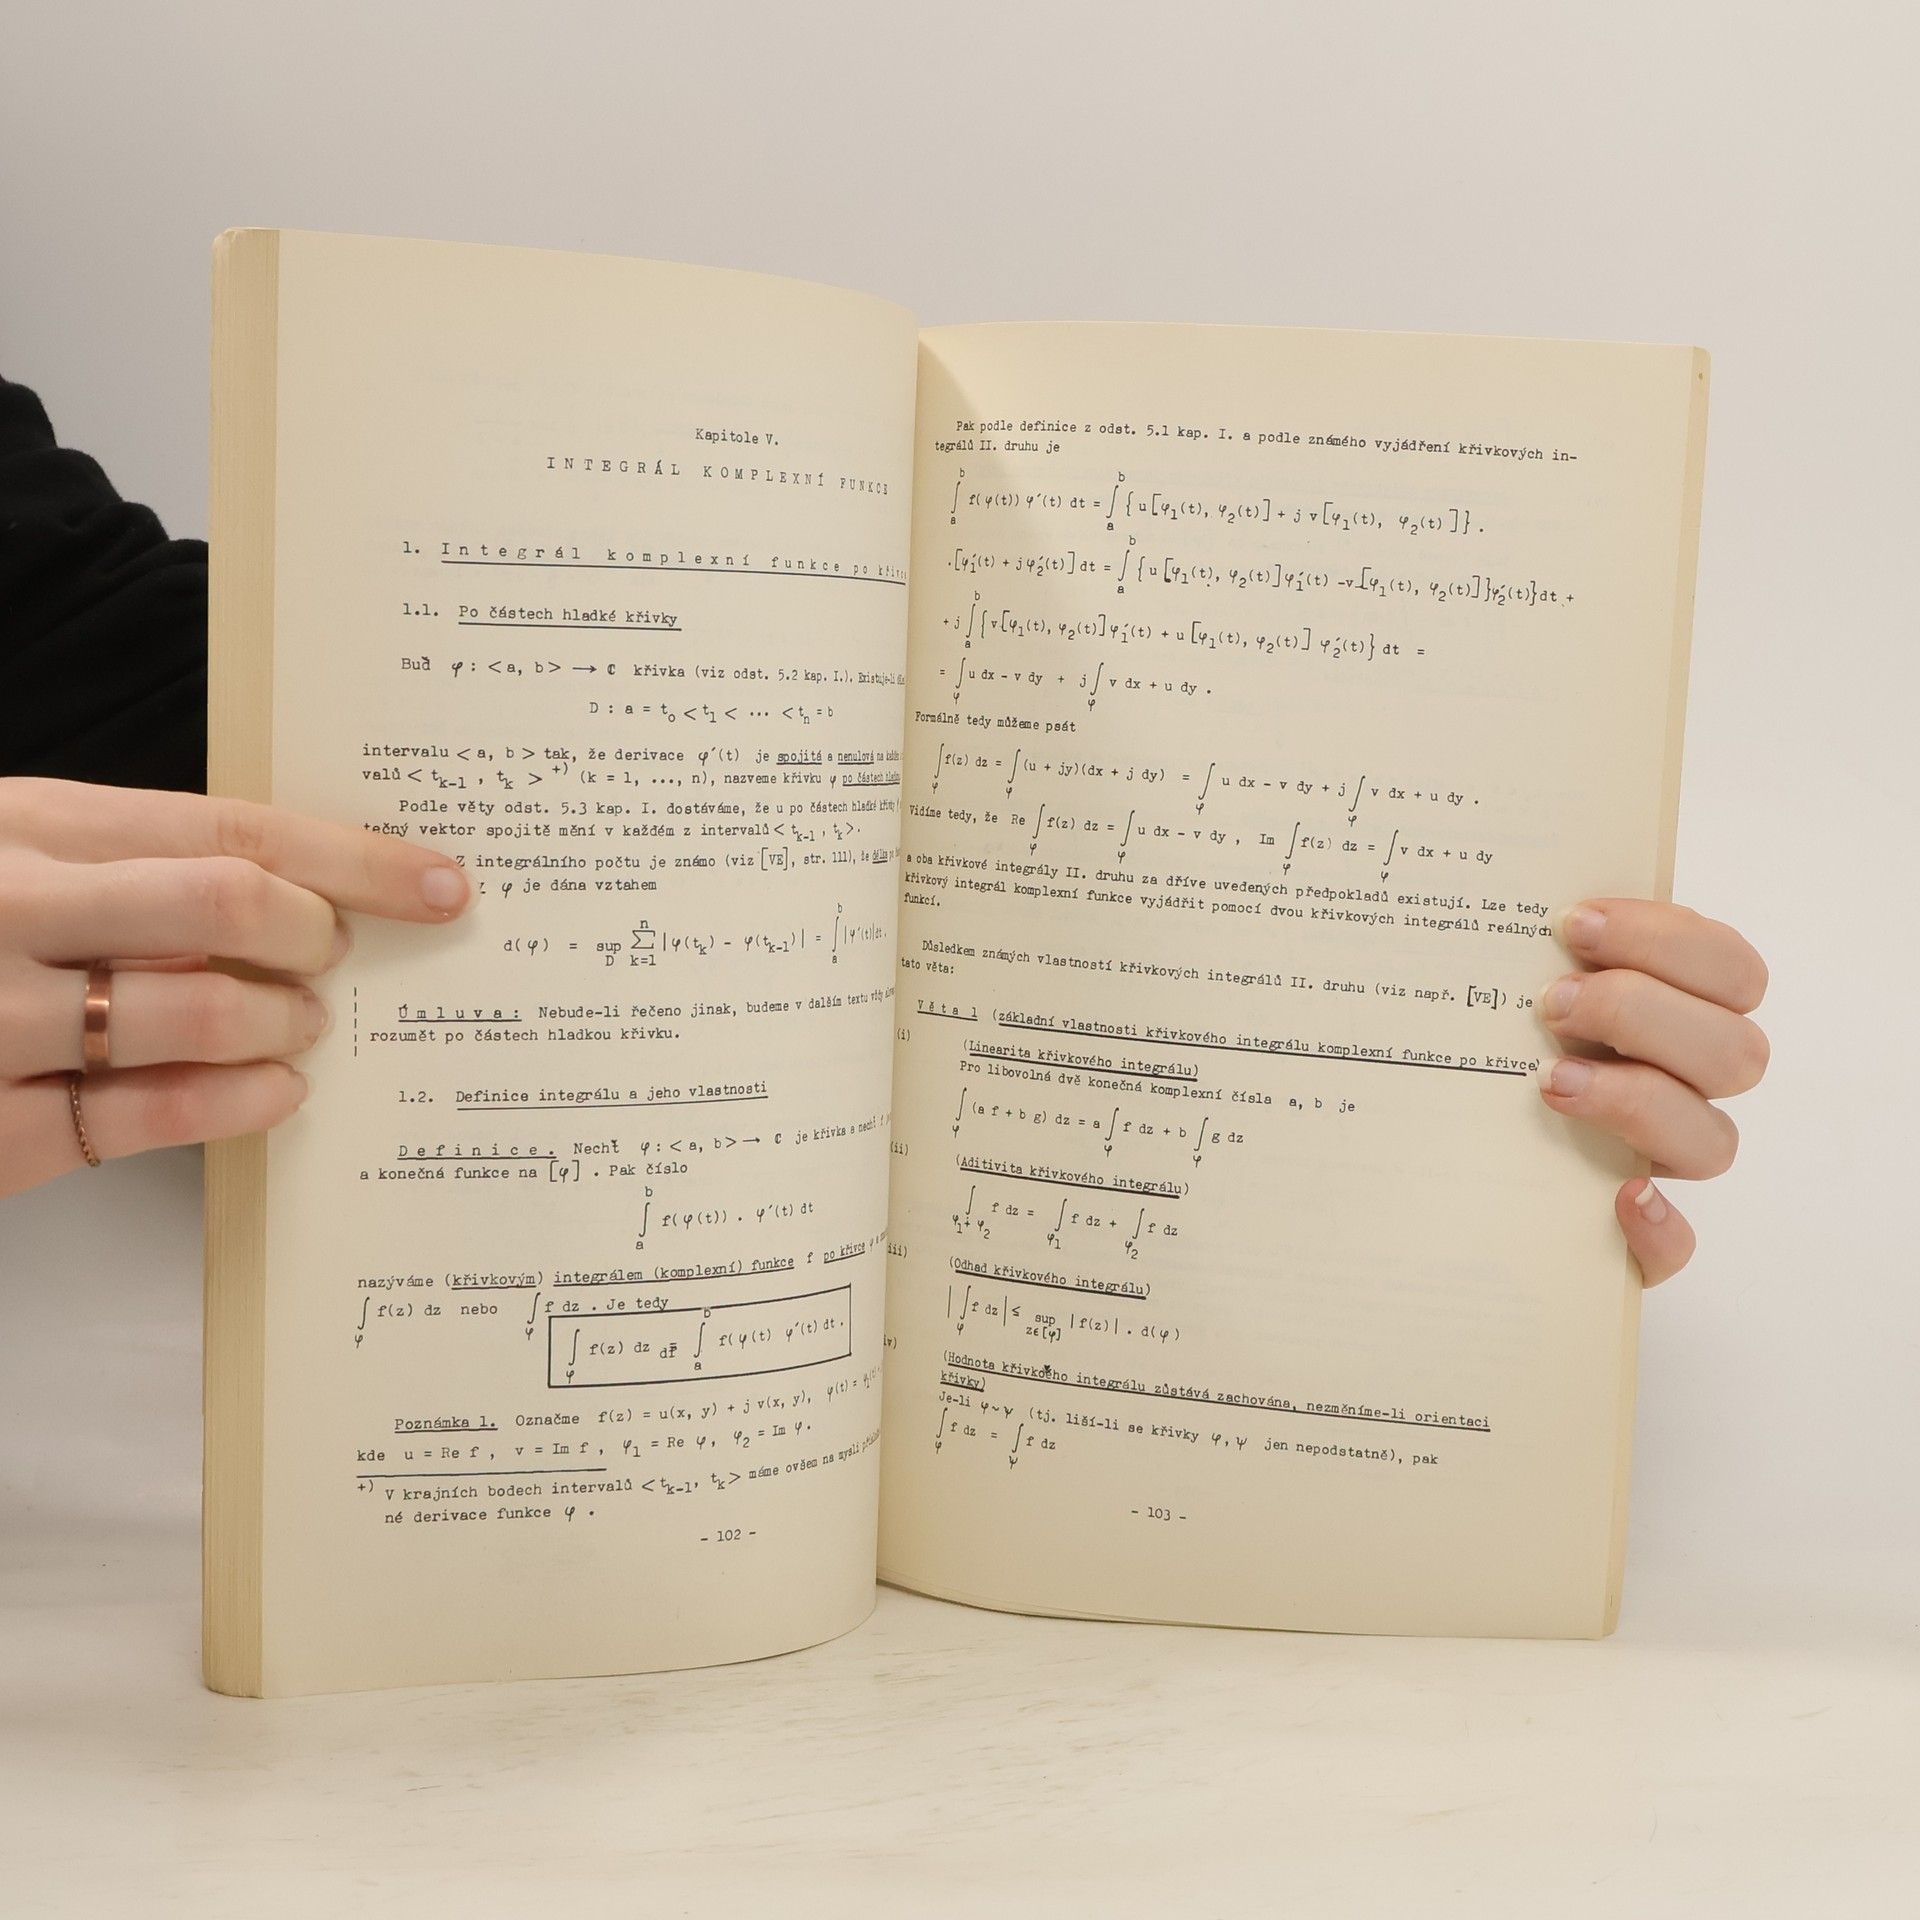 Kapitole V.
INTEGRÁL KOMPLEXNÍ FUNKCE
1. Integrál komplexní funkce po
1.1. Po částech hladké křivky
Buď φ : < a, b > → ℂ křivka (viz odst. 5.2 kap. I.). Existuje-li
D : a = t₀ < t₁ < ... < tₙ = b
intervalu < a, b > tak, že derivace φ′(t) je spojitá a nenulová na
valů < tₖ₋₁ , tₖ > ⁺⁾ (k = 1, ..., n), nazveme křivku φ po částech
Podle věty odst. 5.3 kap. I. dostáváme, že u po částech hladké
tečný vektor spojitě mění v každém z intervalů < tₖ₋₁ , tₖ >.
Z integrálního počtu je známo (viz [VE], str. 111), že délka
φ je dána vztahem
d(φ) = sup_D ∑_{k=1}^{n} |φ(tₖ) − φ(tₖ₋₁)| = ∫_a^b |φ′(t)|dt.
Úmluva: Nebude-li řečeno jinak, budeme v dalším textu vždy
rozumět po částech hladkou křivku.
1.2. Definice integrálu a jeho vlastnosti
Definice. Nechť φ : < a, b > → ℂ je křivka a nechť f
a konečná funkce na [φ] . Pak číslo
∫_a^b f(φ(t)) . φ′(t) dt
nazýváme (křivkovým) integrálem (komplexní) funkce f po křivce φ
∫_φ f(z) dz nebo ∫_φ f dz . Je tedy
∫_φ f(z) dz =_df ∫_a^b f(φ(t) φ′(t) dt.
Poznámka 1. Označme f(z) = u(x, y) + j v(x, y), φ(t) =
kde u = Re f , v = Im f , φ₁ = Re φ, φ₂ = Im φ.
+) V krajních bodech intervalů < tₖ₋₁, tₖ > máme ovšem na mysli
né derivace funkce φ .
- 102 -
Pak podle definice z odst. 5.1 kap. I. a podle známého vyjádření křivkových in-
tegrálů II. druhu je
∫_a^b f(φ(t)) φ′(t) dt = ∫_a^b { u[φ₁(t), φ₂(t)] + j v[φ₁(t), φ₂(t)]} .
.[φ₁′(t) + jφ₂′(t)] dt = ∫_a^b { u [φ₁(t), φ₂(t)]φ₁′(t) -v[φ₁(t), φ₂(t)]}φ₂′(t)}dt +
+ j ∫_a^b { v[φ₁(t), φ₂(t)]φ₁′(t) + u [φ₁(t), φ₂(t)] φ₂′(t)} dt =
= ∫_φ u dx − v dy + j ∫_φ v dx + u dy .
Formálně tedy můžeme psát
∫_φ f(z) dz = ∫_φ (u + jy)(dx + j dy) = ∫_φ u dx − v dy + j ∫_φ v dx + u dy .
Vidíme tedy, že Re ∫_φ f(z) dz = ∫_φ u dx − v dy , Im ∫_φ f(z) dz = ∫_φ v dx + u dy
a oba křivkové integrály II. druhu za dříve uvedených předpokladů existují. Lze tedy
křivkový integrál komplexní funkce vyjádřit pomocí dvou křivkových integrálů reálných
funkcí.
Důsledkem známých vlastností křivkových integrálů II. druhu (viz např. [VE]) je
tato věta:
Věta 1 (základní vlastnosti křivkového integrálu komplexní funkce po křivce)
(i) (Linearita křivkového integrálu)
Pro libovolná dvě konečná komplexní čísla a, b je
∫_φ (a f + b g) dz = a ∫_φ f dz + b ∫_φ g dz
(ii) (Aditivita křivkového integrálu)
∫_{φ₁∔φ₂} f dz = ∫_φ₁ f dz + ∫_φ₂ f dz
iii) (Odhad křivkového integrálu)
| ∫_φ f dz | ≤ sup_{z∈[φ]} |f(z)| . d(φ)
iv) (Hodnota křivkoého integrálu zůstává zachována, nezměníme-li orientaci
křivky)
Je-li φ ~ ψ (tj. liší-li se křivky φ, ψ jen nepodstatně), pak
∫_φ f dz = ∫_ψ f dz
- 103 -